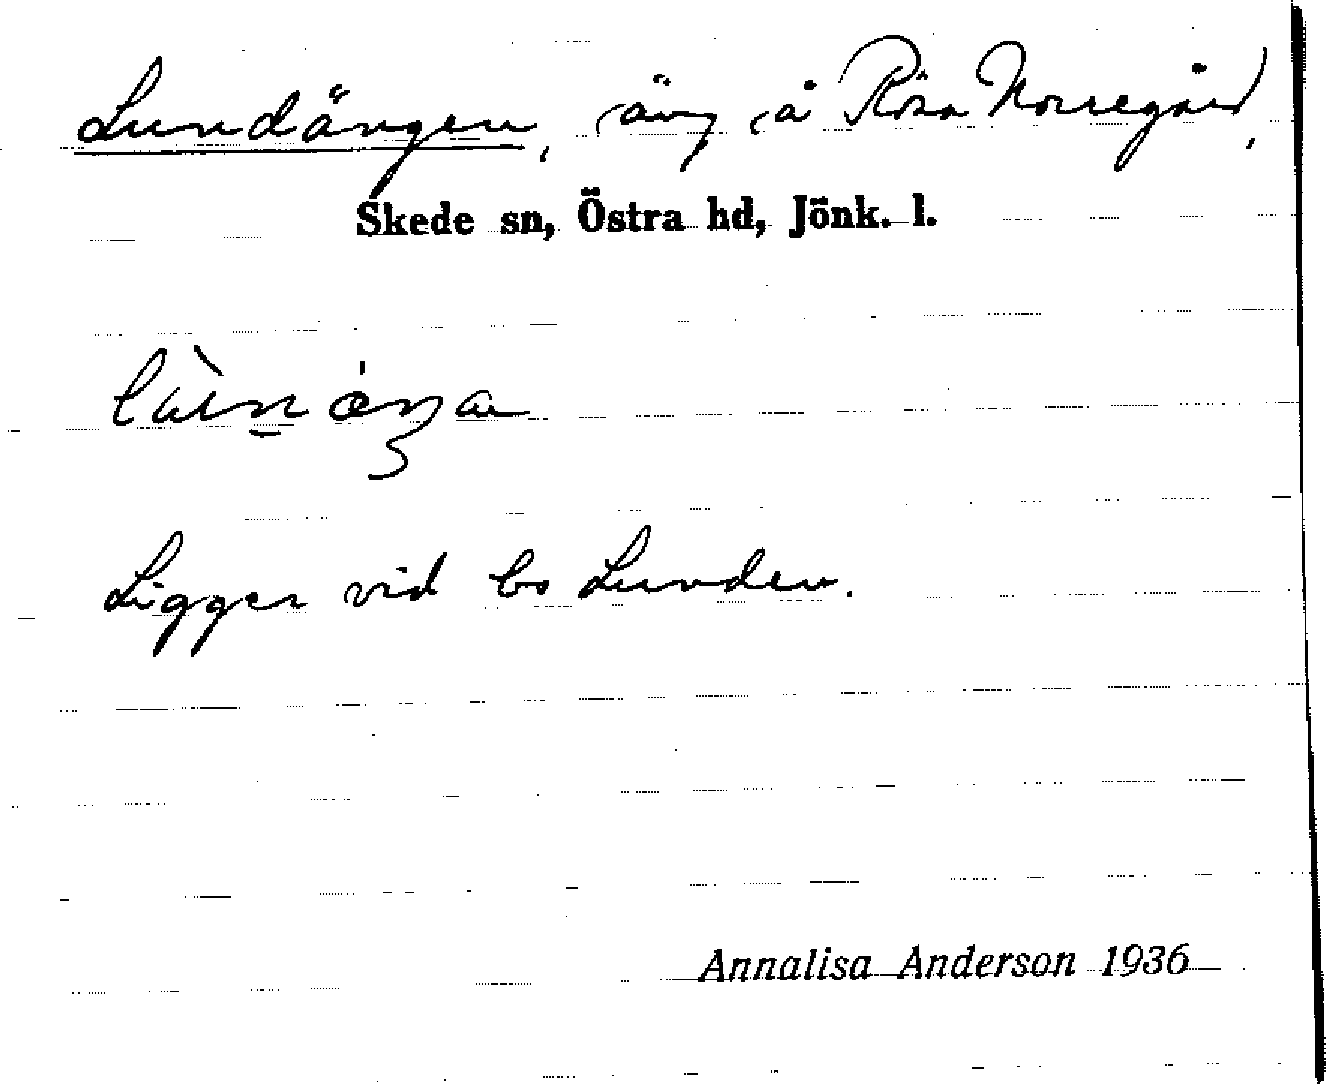 Lundängen, äng å Rösa Norregård,
Skede sn, Östra hd, Jönk. l.
Ligger vid bs Lunden.
Annalisa Anderson 1936